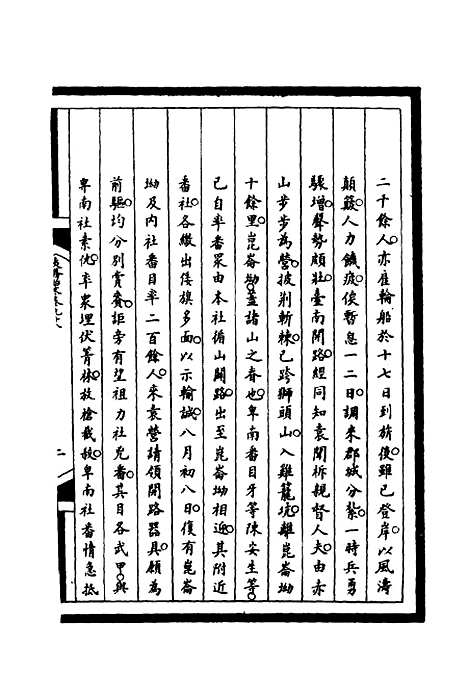 二十餘人亦雇輪船於十七日到旂後雖已登岸以風濤
顛簸人力饑疲俟暫息一二日調來郡城分紮一時兵勇
驟增聲勢頗壯臺南開路經同知袁聞柝親督人夫由赤
山步步為營披荆斬棘已跨獅頭山入雞籠坑離崑崙坳
十餘里崑崙坳蓋諸山之脊也卑南番目牙等陳安生等
已自率番眾由本社循山闢路出至崑崙坳相近其附近
番社各繳出倭旗多面以示輸誠八月初八日復有崑崙
坳及內社番目率二百餘人來袁營請領開路器具願為
前驅均分別賞賚詎旁有望祖力社兇番其目各武甲與
卑南社素仇率眾埋伏菁林放槍截殺卑南社番情急抵